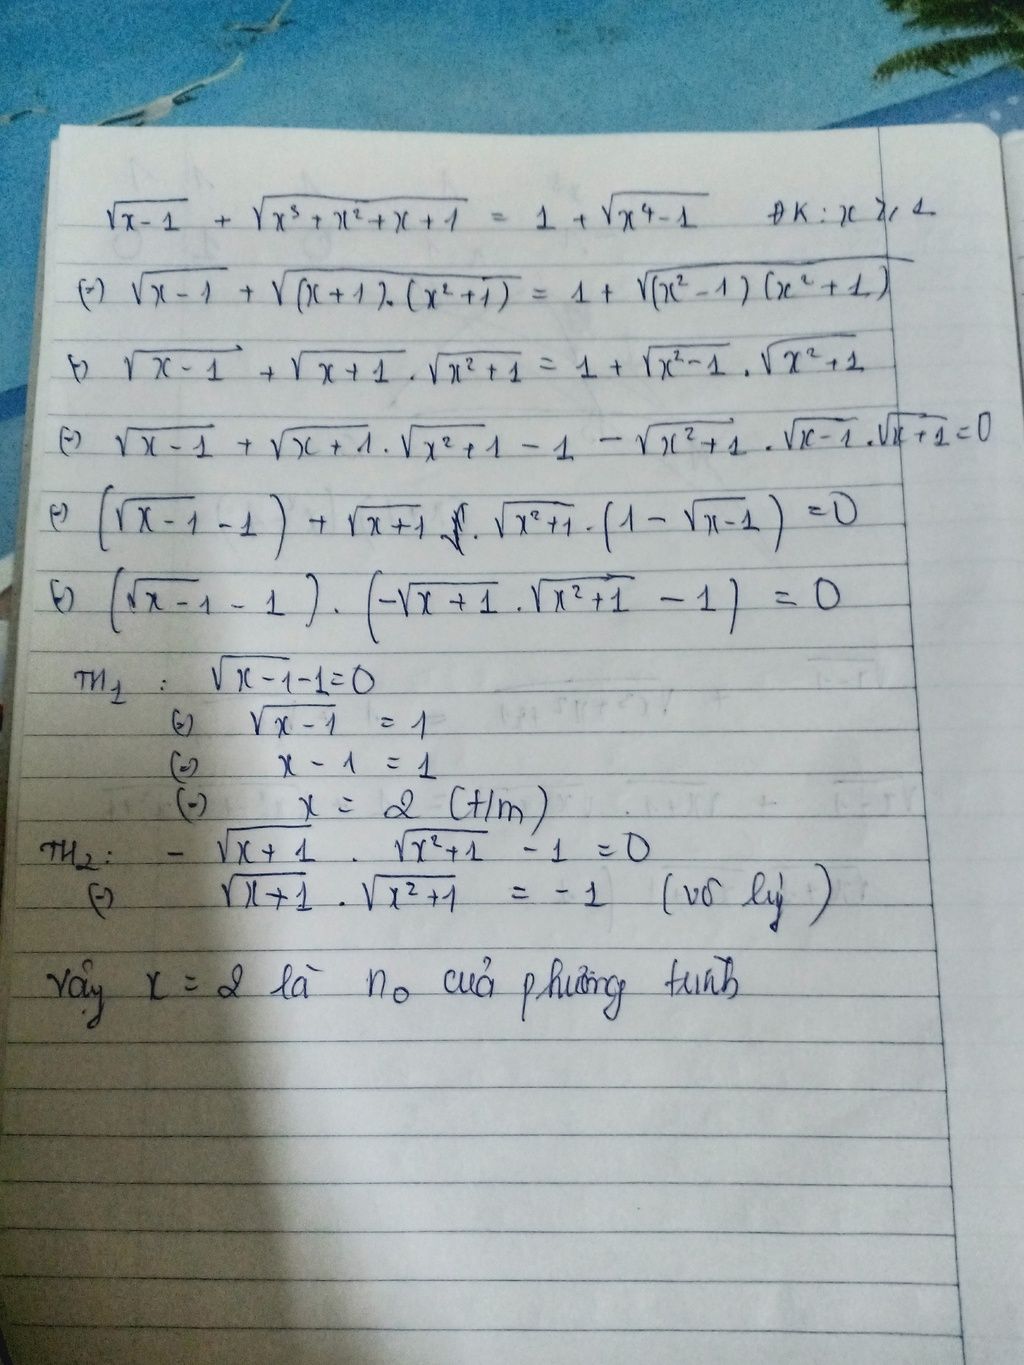 √(x-1) + √(x³+x²+x+1) = 1 + √(x⁴-1) ĐK: x ⩾ 1
(=) √(x-1) + √((x+1).(x²+1)) = 1 + √((x²-1)(x²+1))
(=) √(x-1) + √(x+1) . √(x²+1) = 1 + √(x²-1) . √(x²+1)
(=) √(x-1) + √(x+1) . √(x²+1) - 1 - √(x²+1) . √(x-1) . √(x+1) = 0
(=) (√(x-1) - 1) + √(x+1) . √(x²+1) . (1 - √(x-1)) = 0
(=) (√(x-1) - 1) . (-√(x+1) . √(x²+1) - 1) = 0
TH₁ : √(x-1) - 1 = 0
(=) √(x-1) = 1
(=) x - 1 = 1
(=) x = 2 (t/m)
TH₂ : - √(x+1) . √(x²+1) - 1 = 0
(=) √(x+1) . √(x²+1) = - 1 (vô lý)
Vậy x = 2 là n₀ của phương trình